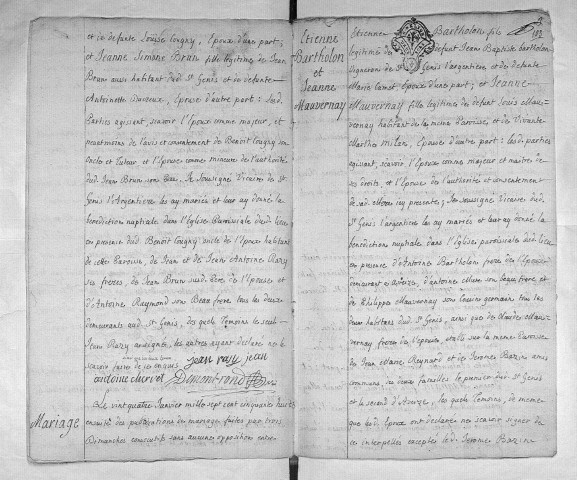 et de defunte Louise Cougny, Epoux d'une part;
et Jeanne Simone Brun fille legitime de Jean
Brun aussi habitant dud. St Genis et de defunte
Antoinette Epouse d'autre part: lesd.
Parties agissant, scavoir l'Epoux comme majeur, et
neantmoins de l'avis et consentement de Benoit Cougny son
oncle et Tuteur et l'Epouse comme mineure de l'authorité
dud. Jean Brun son Pere. Je Soussigné Vicaire de St
Genis l'Argentiere les ay mariés et leur ay donné la
benediction nuptiale dans l'Eglise Paroissiale dud. lieu
en presence dud. Benoit Cougny oncle de l'Epoux habitant
de cette Paroisse, de Jean et de Jean Antoine Razy
ses freres, de Jean Brun sud. Pere de l'Epouse et
d'Antoine Raymond son Beau frere tous les deux
demeurants aud. St Genis, des quels Temoins le seul
Jean Razy a signé, les autres ayant declaré ne le
scavoir faire de ce enquis jean rasy jean
antoine
Mariage
Le vingt quatre Janvier mille sept cent cinquante huit
ensuite des publications de mariage faites par trois
Dimanches consecutifs sans aucune opposition entre
2
Etienne
Bartholon
et
Jeanne
Mauvernay
Etienne Bartholon fils
legitime de defunt Jean Baptiste bartholon
Vigneron de St Genis l'argentiere et de defunte
Marie Epoux d'une part; et Jeanne
Mauvernay fille legitime de defunt Louis Mau-
vernay habitant de la meme Paroisse, et de Vivante
Marthe Milan, Epouse d'autre part: lesd. parties
agissant, scavoir l'Epoux comme majeur et maitre de
ses droits, et l'Epouse de l'authorité et consentement
de sad. Mere icy presente; Je soussigné Vicaire dud.
St Genis l'argentiere les ay mariés et leur ay donné la
benediction nuptiale dans l'Eglise paroissiale dud. lieu
en presence d'Antoine Bartholon frere de l'Epoux
demeurant a Aveize, d'antoine son beau frere et
de Philippe Mauvernay son Cousin germain tous les
deux habitans dud. St Genis, ainsi que de Claude Mau-
vernay frere de l'Epouse, etabli sur la meme Paroisse
de Jean Reynard et de Jerome Bazin amis
communs des deux familles le premier dud. St Genis
et le second d'Aveize, les quels Temoins, de meme
que led. Epoux ont declaré ne scavoir signer de
ce interpellés excepté led. Jerome Bazin